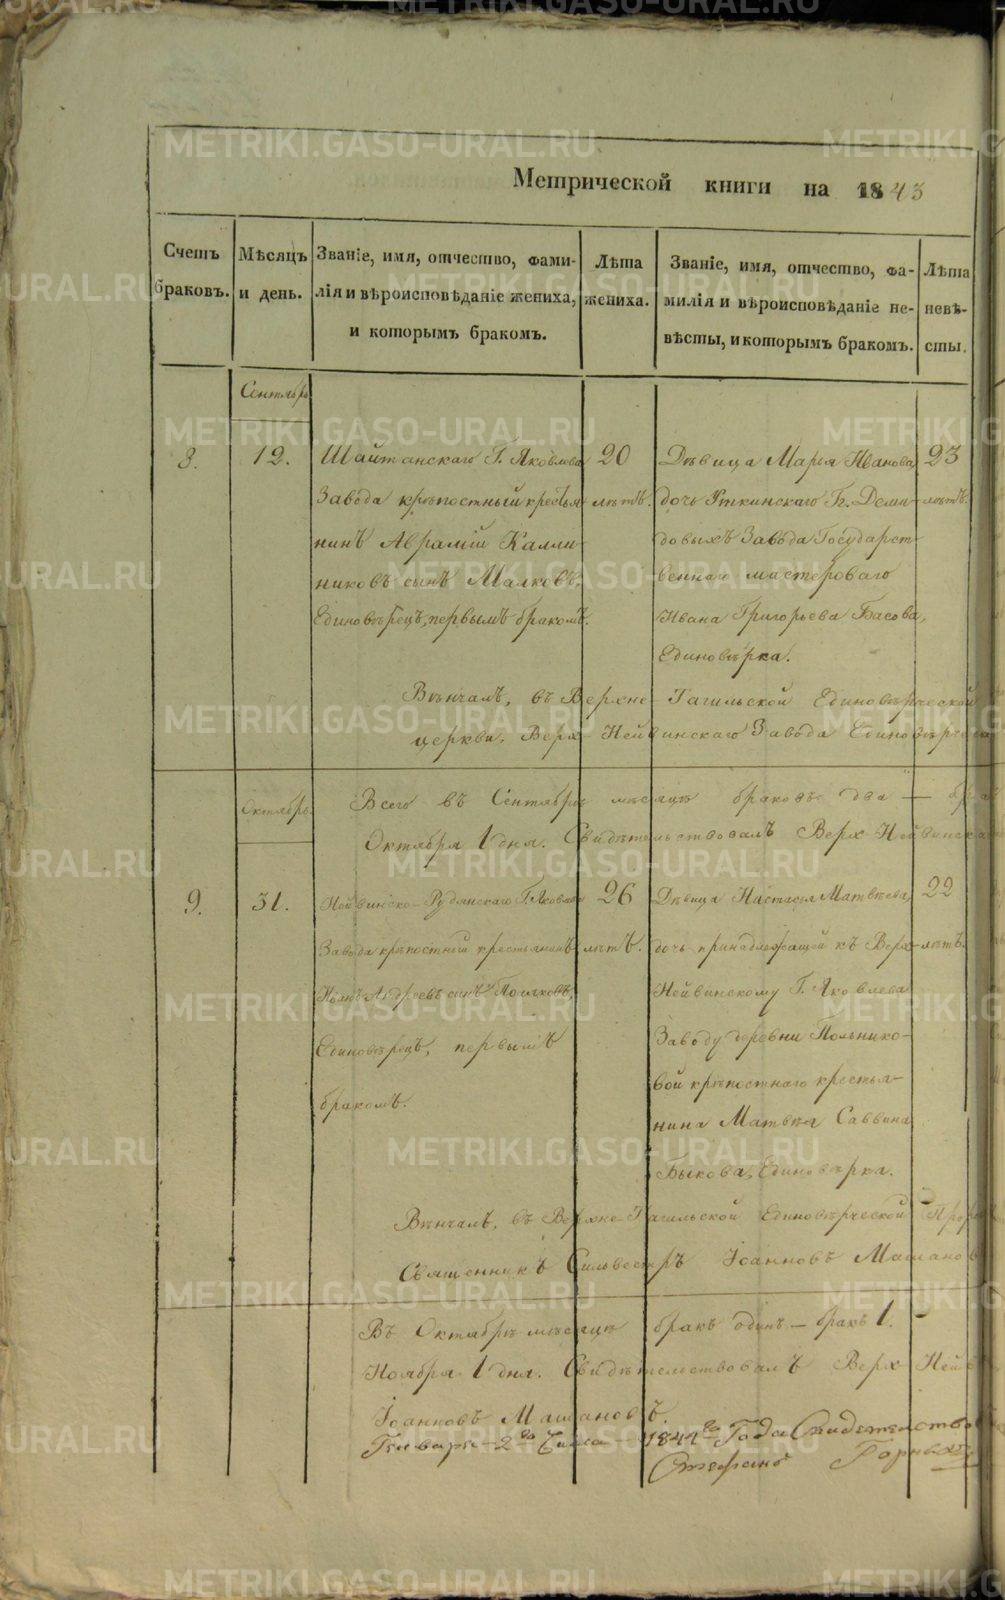 Метрической книги на 1843
Счетъ браковъ.
Мѣсяцъ и день.
Званіе, имя, отчество, фами-
лія и вѣроисповѣданіе жениха,
и которымъ бракомъ.
Лѣта жениха.
Званіе, имя, отчество, фа-
милія и вѣроисповѣданіе не-
вѣсты, и которымъ бракомъ.
Лѣта невѣ-
сты.
Сентябрь
8.
12.
Шайтанскаго Г. Яковлева
Завода крѣпостный крестья-
нинъ Аврамій Калли-
никовъ сынъ Малковъ,
Единовѣрецъ, первымъ бракомъ.
20
лѣтъ.
Дѣвица Марья Иванова
дочь Уткинскаго Гг. Деми-
довыхъ Завода Государст-
веннаго мастероваго
Ивана Григорьева Басова,
Единовѣрка.
23
лѣтъ.
Вѣнчалъ, въ Верхне-Тагильской Единовѣрческой
церкви, Верх-Нейвинскаго Завода
Всего въ Сентябрѣ мѣсяцѣ браковъ два —
Октября 1 дня. Свидѣтельствовалъ Верх-Нейвинска
Октябрь.
9.
31.
Нейвинско-Рудянскаго Г. Яковлева
Завода крѣпостный крестьянинъ
Андреевъ сынъ Поляковъ,
Единовѣрецъ, первымъ
бракомъ.
26
лѣтъ.
Дѣвица Настасья Матвѣева,
дочь принадлежащей къ Верх-
Нейвинскому Г. Яковлева
Заводу деревни Польнико-
вой крѣпостнаго крестья-
нина Матвѣя Саввина
Быкова, Единовѣрка.
22
лѣтъ.
Вѣнчалъ, въ Верхне-Тагильской Единовѣрческой
Священникъ Сильвестръ Іоанновъ Машанов
Въ Октябрѣ мѣсяцѣ бракъ одинъ — бракъ 1.
Ноября 1 дня. Свидѣтельствовалъ Верх-Ней
Іоанновъ Машановъ.
Генваря 2го Числа 1844го Года Свидетелство
Стефанъ Горныхъ
METRIKI.GASO-URAL.RU